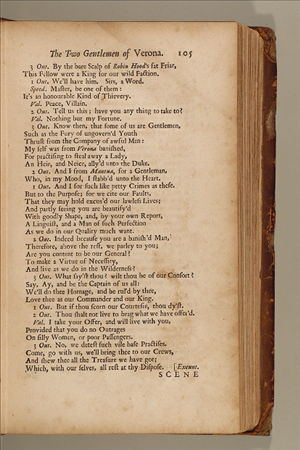 The Two Gentlemen of Verona. 105
3 Out. By the bare Scalp of Robin Hood's fat Friar,
This Fellow were a King for our wild Faction.
1 Out. We'll have him. Sirs, a Word.
Speed. Master, be one of them:
It's an honourable Kind of Thievery.
Val. Peace, Villain.
2 Out. Tell us this; have you any thing to take to?
Val. Nothing but my Fortune.
3 Out. Know then, that some of us are Gentlemen,
Such as the Fury of ungovern'd Youth
Thrust from the Company of awful Men:
My self was from Verona banished,
For practising to steal away a Lady,
An Heir, and Neice, ally'd unto the Duke.
2 Out. And I from Mantua, for a Gentleman,
Who, in my Mood, I stabb'd unto the Heart.
1 Out. And I for such like petty Crimes as these.
But to the Purpose; for we cite our Faults,
That they may hold excus'd our lawless Lives;
And partly seeing you are beautify'd
With goodly Shape, and, by your own Report,
A Linguist, and a Man of such Perfection
As we do in our Quality much want.
2 Out. Indeed because you are a banish'd Man,
Therefore, above the rest, we parley to you;
Are you content to be our General?
To make a Virtue of Necessity,
And live as we do in the Wilderness?
3 Out. What say'st thou? wilt thou be of our Consort?
Say, Ay, and be the Captain of us all:
We'll do thee Homage, and be rul'd by thee,
Love thee as our Commander and our King.
1 Out. But if thou scorn our Courtesie, thou dy'st.
2 Out. Thou shalt not live to brag what we have offer'd.
Val. I take your Offer, and will live with you,
Provided that you do no Outrages
On silly Women, or poor Passengers.
3 Out. No, we detest such vile base Practises.
Come, go with us, we'll bring thee to our Crews,
And shew thee all the Treasure we have got;
Which, with our selves, all rest at thy Dispose. [Exeunt.
SCENE